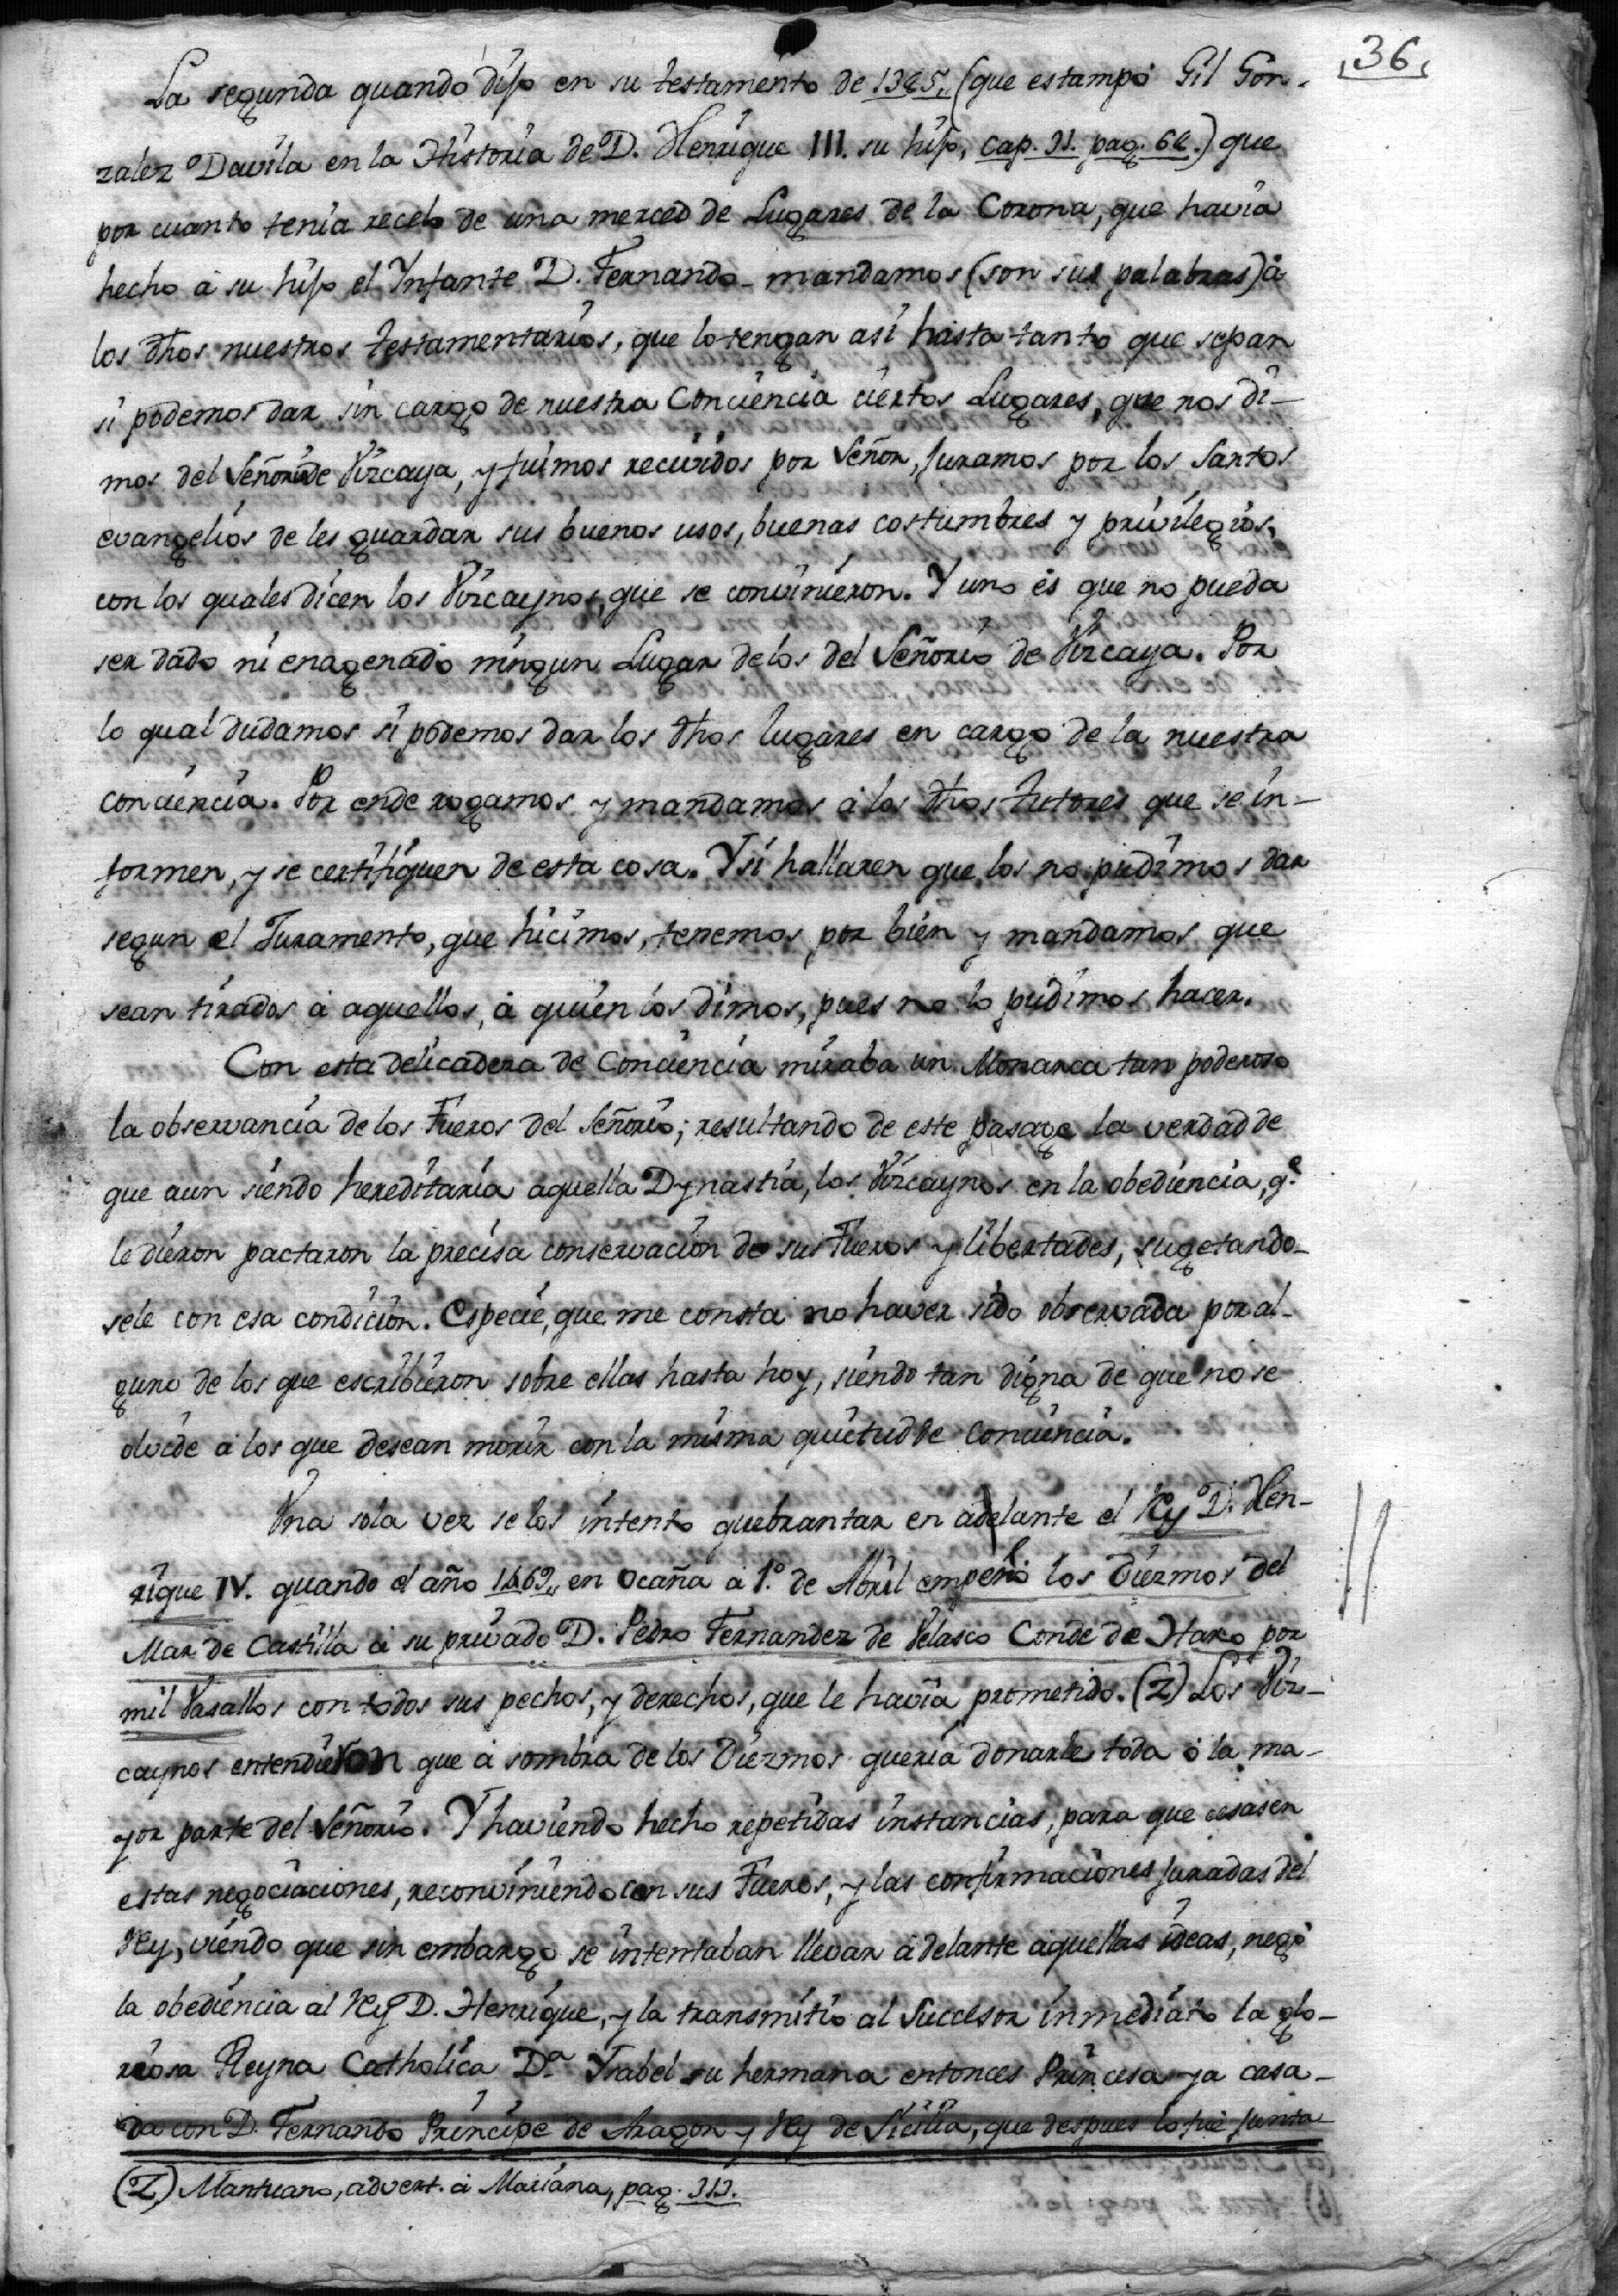 36
La segunda quando dijo en su testamento de 1385, (que estampó Gil Gon-
zalez Davila en la Historia de D. Henrique III. su hijo, cap. 31. pag. 68.) que
por cuanto tenia recelo de una merced de Lugares de la Corona, que havia
hecho á su hijo el Infante D. Fernando - mandamos (son sus palabras) á
los dhos nuestros testamentarios, que lo tengan así hasta tanto que sepan
si podemos dar sin cargo de nuestra Conciencia ciertos Lugares, que nos di-
mos del Señorio de Vizcaya, y fuimos recividos por Señor, juramos por los Santos
evangelios de les guardar sus buenos usos, buenas costumbres y privilegios,
con los quales dicen los Vizcaynos, que se convinieron. Y uno es que no pueda
ser dado ni enagenado ningun Lugar de los del Señorio de Vizcaya. Por
lo qual dudamos si podemos dar los dhos lugares en cargo de la nuestra
conciencia. Por ende rogamos y mandamos á los dhos tutores que se in-
formen, y se certifiquen de esta cosa. Y si hallaren que los no pudimos dar
segun el Juramento, que hicimos, tenemos por bien y mandamos que
sean tirados á aquellos, á quien los dimos, pues no lo pudimos hacer.
Con esta delicadeza de Conciencia miraba un Monarca tan poderoso
la observancia de los Fueros del Señorio; resultando de este pasage la verdad de
que aun siendo hereditaria aquella Dynastia, los Vizcaynos en la obediencia, q.e
le dieron pactaron la precisa conservacion de sus Fueros y libertades, sugetando-
sele con esa condicion. Especie, que me consta no haver sido observada por al-
guno de los que escribieron sobre ellas hasta hoy, siendo tan digna de que no se
olvide á los que desean morir con la misma quietud de Conciencia.
Una sola vez se los intentó quebrantar en adelante el Rey D. Hen-
rique IV. quando el año 1469, en Ocaña á 1.º de Abril empeñó los Diezmos del
Mar de Castilla á su privado D. Pedro Fernandez de Velasco Conde de Haro por
mil Vasallos con todos sus pechos, y derechos, que le havia prometido. (Z) Los Viz-
caynos entendieron que á sombra de los Diezmos queria donarle toda ó la ma-
yor parte del Señorio. Y haviendo hecho repetidas instancias, para que cesasen
estas negociaciones, reconviniendo con sus Fueros, y las confirmaciones juradas del
Rey, viendo que sin embargo se intentaban llevar adelante aquellas ideas, negó
la obediencia al Rey D. Henrique, y la transmitió al Succesor inmediato la glo-
riosa Reyna Catholica D.a Ysabel su hermana entonces Princesa ya casa-
da con D. Fernando Principe de Aragon y Rey de Sicilia, que despues lo fué junta-
(Z) Mantuano, advert. á Mariana, pag. 313.